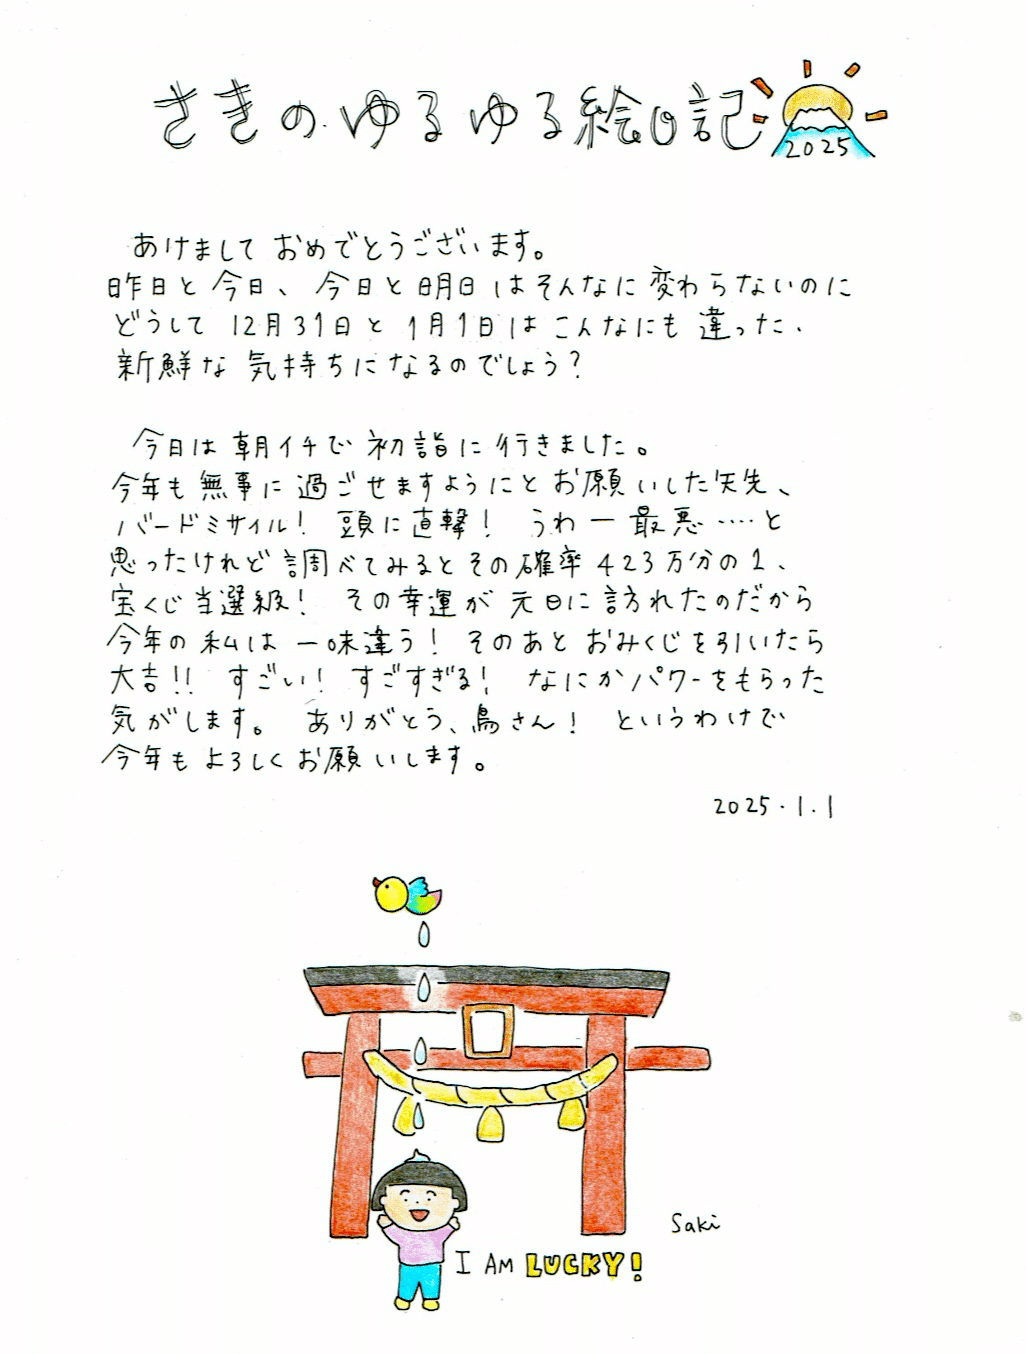 さきのゆるゆる絵日記
2025
あけまして おめでとうございます。
昨日と今日、今日と明日はそんなに変わらないのに
どうして12月31日と1月1日はこんなにも違った、
新鮮な気持ちになるのでしょう?
今日は朝イチで初詣に行きました。
今年も無事に過ごせますようにとお願いした矢先、
バードミサイル! 頭に直撃! うわー最悪‥‥と
思ったけれど調べてみるとその確率423万分の1、
宝くじ当選級! その幸運が元日に訪れたのだから
今年の私は一味違う! そのあとおみくじを引いたら
大吉!! すごい! すごすぎる! なにかパワーをもらった
気がします。 ありがとう、鳥さん! というわけで
今年もよろしくお願いします。
2025.1.1
Saki
I AM LUCKY!